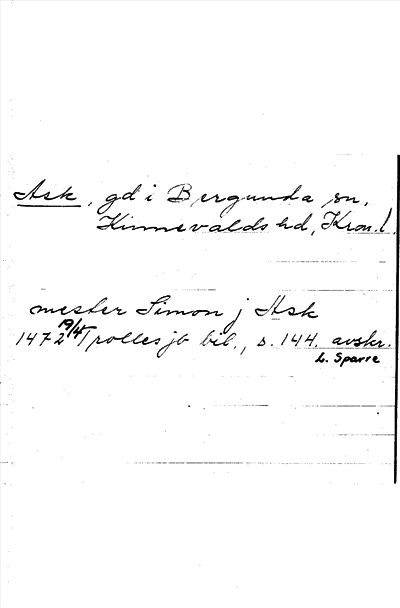 Ask, gd i Bergunda sn,
Kinnevalds hd, Kron. l.
mester Simon j Ask
1472 19/4 Trolles jb bil., s. 144. avskr.
L. Sparre